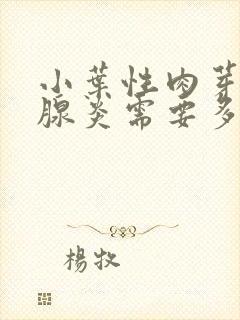 小葉性肉芽
腺炎需要多
楊牧